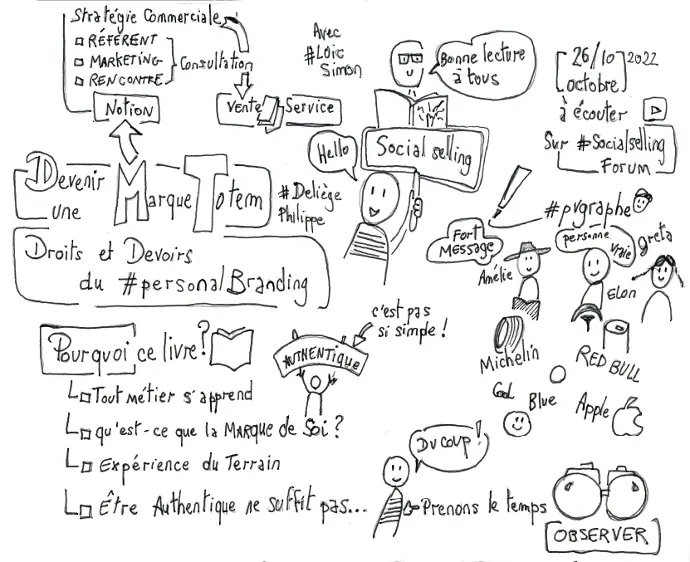 Stratégie Commerciale
RÉFÉRENT
MARKETING
RENCONTRE
Consultation
NOTION
VENTE Service
Avec
#Loïc
Simon
Bonne lecture
à tous
26/10 2022
octobre
à écouter
Sur #Socialselling
Forum
Hello
Social selling
Devenir
une
Marque Totem
#Deliège
Philippe
Droits et Devoirs
du #personalBranding
#pvgraphe
FORT
MESSAGE
Amélie
personne
vraie
greta
Elon
Pourquoi ce livre?
Tout métier s'apprend
qu'est-ce que la MARQUE de Soi ?
Expérience du Terrain
Être Authentique ne suffit pas...
AUTHENTIQUE
c'est pas
si simple !
Michelin
RED BULL
Cool
Blue
Apple
DU COUP !
Prenons le temps
OBSERVER